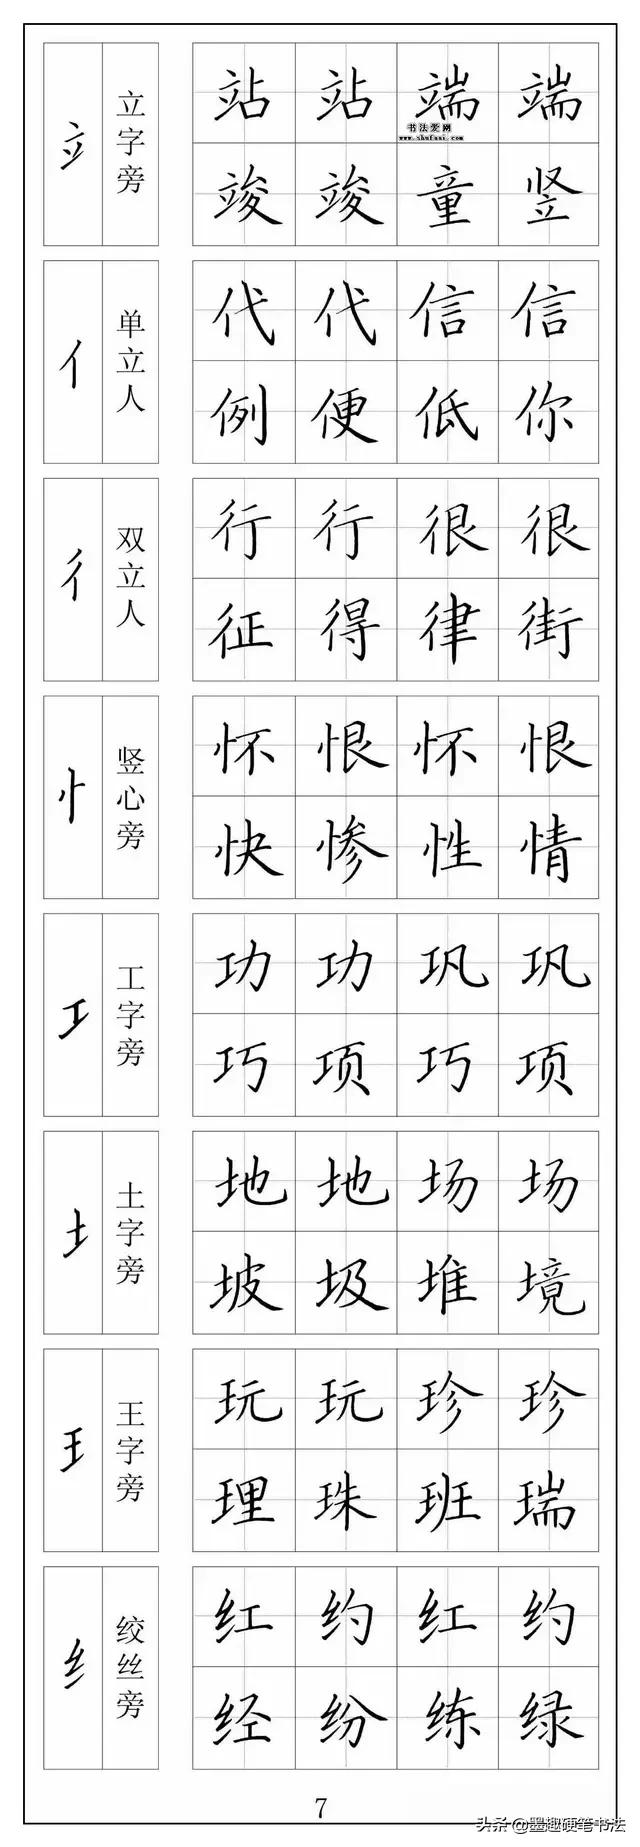 立字旁
站站端端
书法爱网
www.shufuai.com
竣竣童竖
亻
单立人
代代信信
例便低你
彳
双立人
行行很很
征得律街
忄
竖心旁
怀恨怀恨
快惨性情
工
工字旁
功功巩巩
巧项巧项
土
土字旁
地地场场
坡圾堆境
王
王字旁
玩玩珍珍
理珠班瑞
纟
绞丝旁
红约红约
经纷练绿
7
头条@墨趣硬笔书法